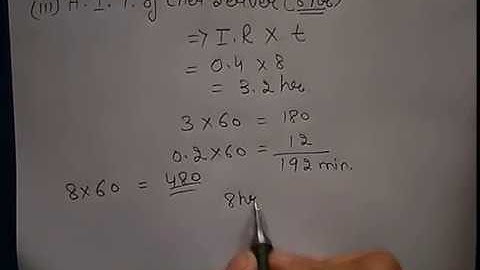 (iii) A. I. T. of the server (8 hr)
=> I.R x t
= 0.4 x 8
= 3.2 hr
3 x 60 = 180
0.2 x 60 = 12
192 min.
8 x 60 = 480
8 hr